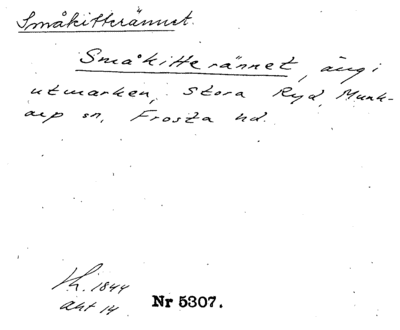 Småkitterännet.
Småkitterännet, äng i
utmarken, Stora Ryd, Munk-
arp sn, Frosta hd.
Lh. 1844
akt 14 Nr 5307.